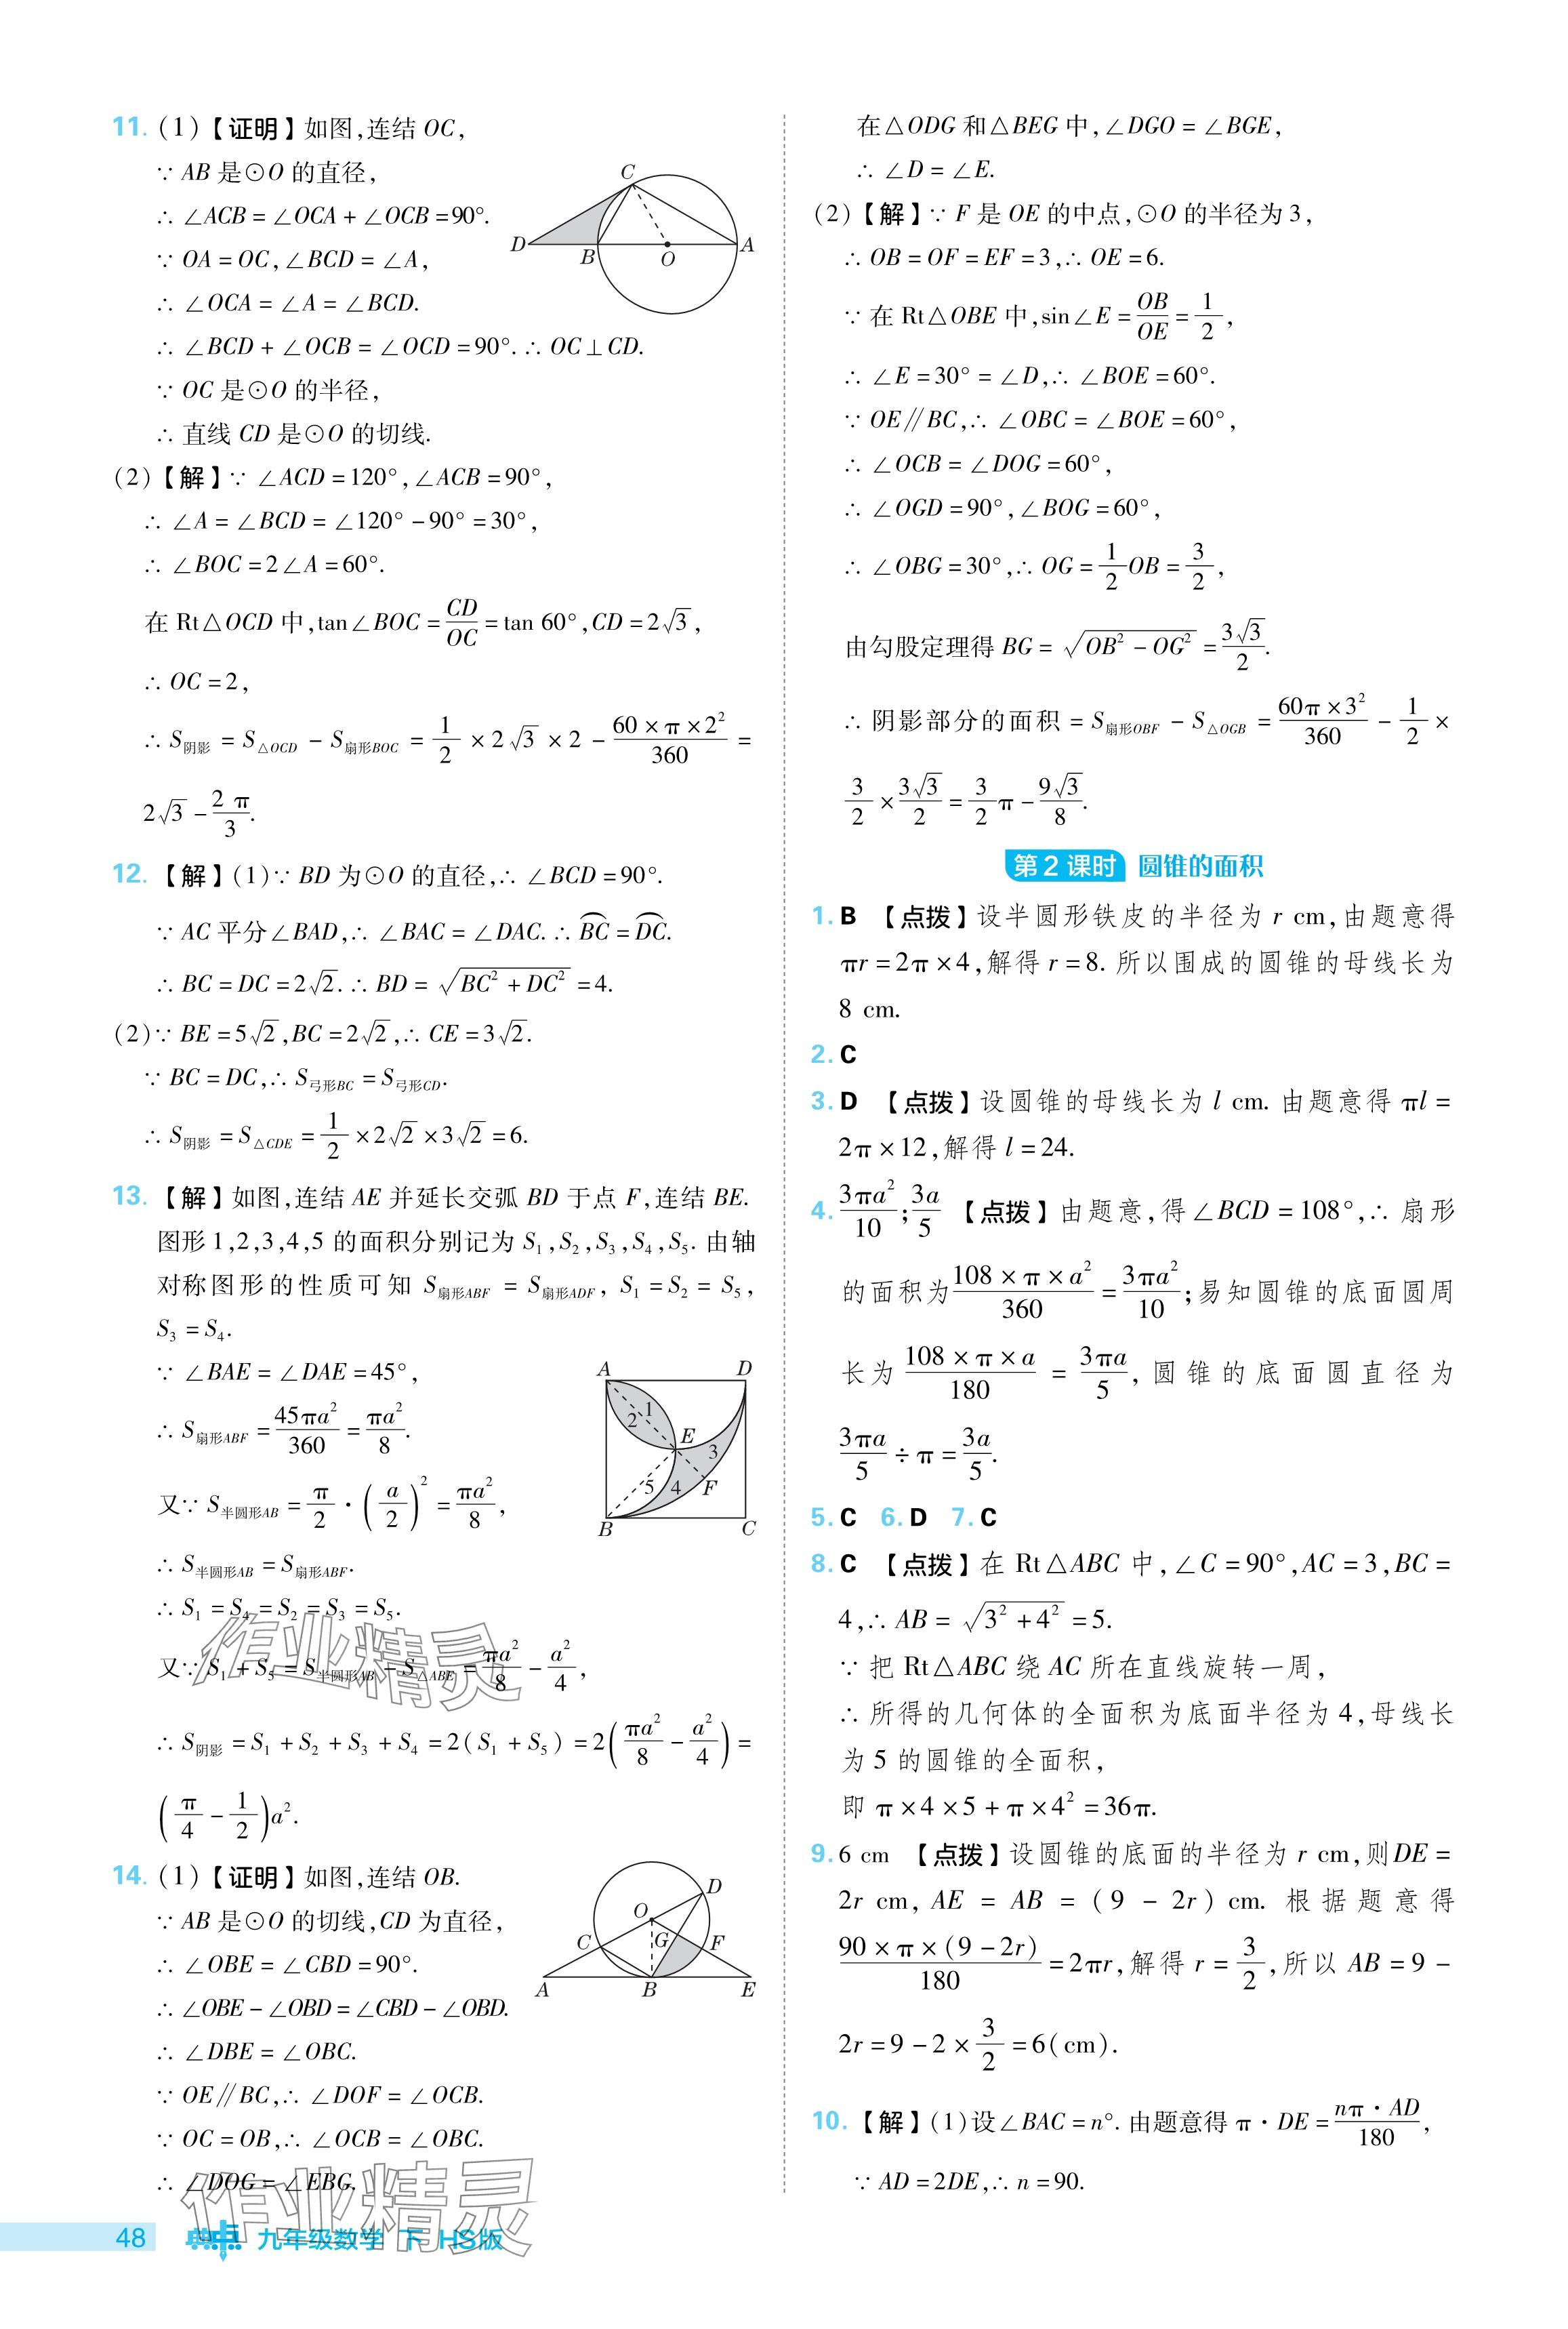 11. (1)【证明】如图,连结 OC,
∵ AB 是⊙O 的直径,
∴ ∠ACB = ∠OCA + ∠OCB = 90°.
∵ OA = OC, ∠BCD = ∠A,
∴ ∠OCA = ∠A = ∠BCD.
∴ ∠BCD + ∠OCB = ∠OCD = 90°. ∴ OC ⊥ CD.
∵ OC 是⊙O 的半径,
∴ 直线 CD 是⊙O 的切线.
C
D
B
O
A
(2)【解】∵ ∠ACD = 120°, ∠ACB = 90°,
∴ ∠A = ∠BCD = ∠120° − 90° = 30°,
∴ ∠BOC = 2∠A = 60°.
在 Rt△OCD 中, tan∠BOC = CD/OC = tan 60°, CD = 2√3,
∴ OC = 2,
∴ S阴影 = S△OCD − S扇形BOC = 1/2 × 2√3 × 2 − (60 × π × 2²)/360 =
2√3 − 2π/3.
12. 【解】(1)∵ BD 为⊙O 的直径,∴ ∠BCD = 90°.
∵ AC 平分∠BAD,∴ ∠BAC = ∠DAC. ∴ ⌒BC = ⌒DC.
∴ BC = DC = 2√2. ∴ BD = √(BC² + DC²) = 4.
(2)∵ BE = 5√2, BC = 2√2,∴ CE = 3√2.
∵ BC = DC,∴ S弓形BC = S弓形CD.
∴ S阴影 = S△CDE = 1/2 × 2√2 × 3√2 = 6.
13. 【解】如图,连结 AE 并延长交弧 BD 于点 F,连结 BE.
图形 1,2,3,4,5 的面积分别记为 S₁,S₂,S₃,S₄,S₅. 由轴
对称图形的性质可知 S扇形ABF = S扇形ADF, S₁ = S₂ = S₅,
S₃ = S₄.
∵ ∠BAE = ∠DAE = 45°,
∴ S扇形ABF = 45πa²/360 = πa²/8.
又∵ S半圆形AB = π/2 · (a/2)² = πa²/8,
∴ S半圆形AB = S扇形ABF.
∴ S₁ = S₄ = S₂ = S₃ = S₅.
又∵ S₁ + S₅ = S半圆形AB − S△ABE = πa²/8 − a²/4,
∴ S阴影 = S₁ + S₂ + S₃ + S₄ = 2(S₁ + S₅) = 2(πa²/8 − a²/4) =
(π/4 − 1/2)a².
A
D
1
2
E
3
5
4
F
B
C
14. (1)【证明】如图,连结 OB.
∵ AB 是⊙O 的切线,CD 为直径,
∴ ∠OBE = ∠CBD = 90°.
∴ ∠OBE − ∠OBD = ∠CBD − ∠OBD.
∴ ∠DBE = ∠OBC.
∵ OE∥BC,∴ ∠DOF = ∠OCB.
∵ OC = OB,∴ ∠OCB = ∠OBC.
∴ ∠DOG = ∠EBG.
D
O
C
G
F
A
B
E
在△ODG 和△BEG 中,∠DGO = ∠BGE,
∴ ∠D = ∠E.
(2)【解】∵ F 是 OE 的中点,⊙O 的半径为 3,
∴ OB = OF = EF = 3,∴ OE = 6.
∵ 在 Rt△OBE 中, sin∠E = OB/OE = 1/2,
∴ ∠E = 30° = ∠D,∴ ∠BOE = 60°.
∵ OE∥BC,∴ ∠OBC = ∠BOE = 60°,
∴ ∠OCB = ∠DOG = 60°,
∴ ∠OGD = 90°, ∠BOG = 60°,
∴ ∠OBG = 30°,∴ OG = 1/2 OB = 3/2,
由勾股定理得 BG = √(OB² − OG²) = 3√3/2.
∴ 阴影部分的面积 = S扇形OBF − S△OGB = (60π × 3²)/360 − 1/2 ×
3/2 × 3√3/2 = 3/2 π − 9√3/8.
第 2 课时 圆锥的面积
1. B 【点拨】设半圆形铁皮的半径为 r cm,由题意得
πr = 2π × 4,解得 r = 8. 所以围成的圆锥的母线长为
8 cm.
2. C
3. D 【点拨】设圆锥的母线长为 l cm. 由题意得 πl =
2π × 12,解得 l = 24.
4. 3πa²/10; 3a/5 【点拨】由题意,得∠BCD = 108°,∴ 扇形
的面积为 (108 × π × a²)/360 = 3πa²/10;易知圆锥的底面圆周
长为 (108 × π × a)/180 = 3πa/5,圆锥的底面圆直径为
3πa/5 ÷ π = 3a/5.
5. C 6. D 7. C
8. C 【点拨】在 Rt△ABC 中,∠C = 90°, AC = 3, BC =
4,∴ AB = √(3² + 4²) = 5.
∵ 把 Rt△ABC 绕 AC 所在直线旋转一周,
∴ 所得的几何体的全面积为底面半径为 4,母线长
为 5 的圆锥的全面积,
即 π × 4 × 5 + π × 4² = 36π.
9. 6 cm 【点拨】设圆锥的底面的半径为 r cm,则DE =
2r cm, AE = AB = (9 − 2r) cm. 根据题意得
(90 × π × (9 − 2r))/180 = 2πr,解得 r = 3/2,所以 AB = 9 −
2r = 9 − 2 × 3/2 = 6(cm).
10. 【解】(1)设∠BAC = n°. 由题意得 π · DE = (nπ · AD)/180,
∵ AD = 2DE,∴ n = 90.
作业精灵
作业精灵
48 典中点 九年级数学 下 HS版